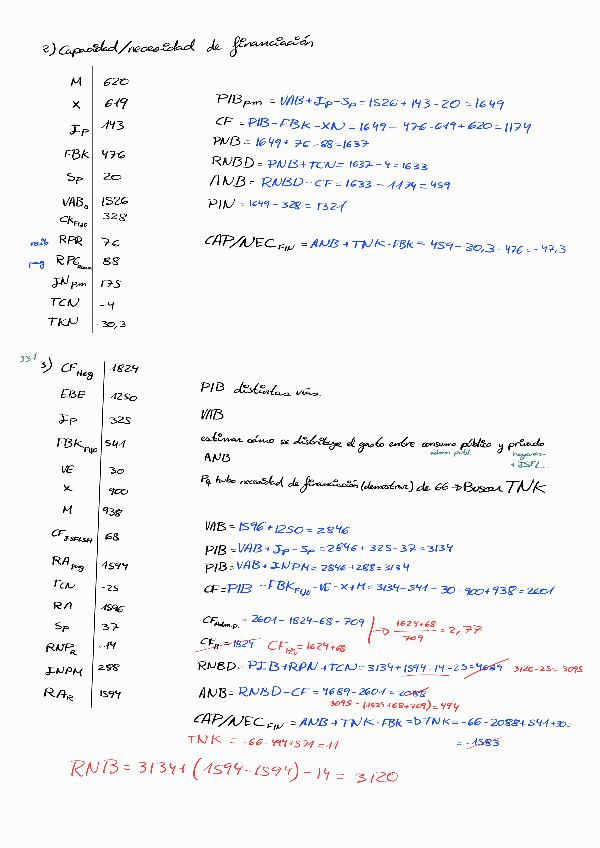 2) Capacidad/necesidad de financiación
M 620
X 619
Ip 143
FBK 476
Sp 20
VAB 1526
CK Fijo 328
RFR 76
88
INpm 175
TCN -4
TKN -30,3
PIBpm = VAB + Ip - Sp = 1526 + 143 - 20 = 1649
CF = PIB - FBK - XN = 1649 - 476 - 619 + 620 = 1174
PNB = 1649 + 76 - 88 = 1637
RNBD = PNB + TCN = 1637 - 4 = 1633
ANB = RNBD - CF = 1633 - 1174 = 459
PIN = 1649 - 328 = 1321
CAP/NEC FIN = ANB + TNK - FBK = 459 - 30,3 - 476 = -47,3
331
3) CF Hog 1824
EBE 1250
Ip 325
FBK Fijo 541
VE 30
X 900
M 938
CF ISFLSH 68
RA pag 1594
TCN -25
RA 1596
Sp 37
RNPR -14
INPM 288
RAR 1594
PIB distintas vías.
VAB
estimar cómo se distribuye el gasto entre consumo público y privado
admin públ. hogares + ISFL...
ANB
Pq hubo necesidad de financiación (demostrar) de 66 -> Buscar TNK
VAB = 1596 + 1250 = 2846
PIB = VAB + Ip - Sp = 2846 + 325 - 37 = 3134
PIB = VAB + INPM = 2846 + 288 = 3134
CF = PIB - FBK Fijo - VE - X + M = 3134 - 541 - 30 - 900 + 938 = 2601
CF Adm.p. = 2601 - 1824 - 68 = 709 -> 1624+68 / 709 = 2,77
CF = 1824 CF Priv = 1624+68
RNBD = PIB + RPN + TCN = 3134 + 1594 - 14 - 25 = 4689 3120 - 25 = 3095
ANB = RNBD - CF = 4689 - 2601 = 2088
3095 - (1824 + 68 + 709) = 494
CAP/NEC FIN = ANB + TNK - FBK => TNK = -66 - 2088 + 541 + 30 =
= -1583
TNK = -66 - 494 + 571 = 11
RNB = 3134 + (1594 - 1594) - 14 = 3120